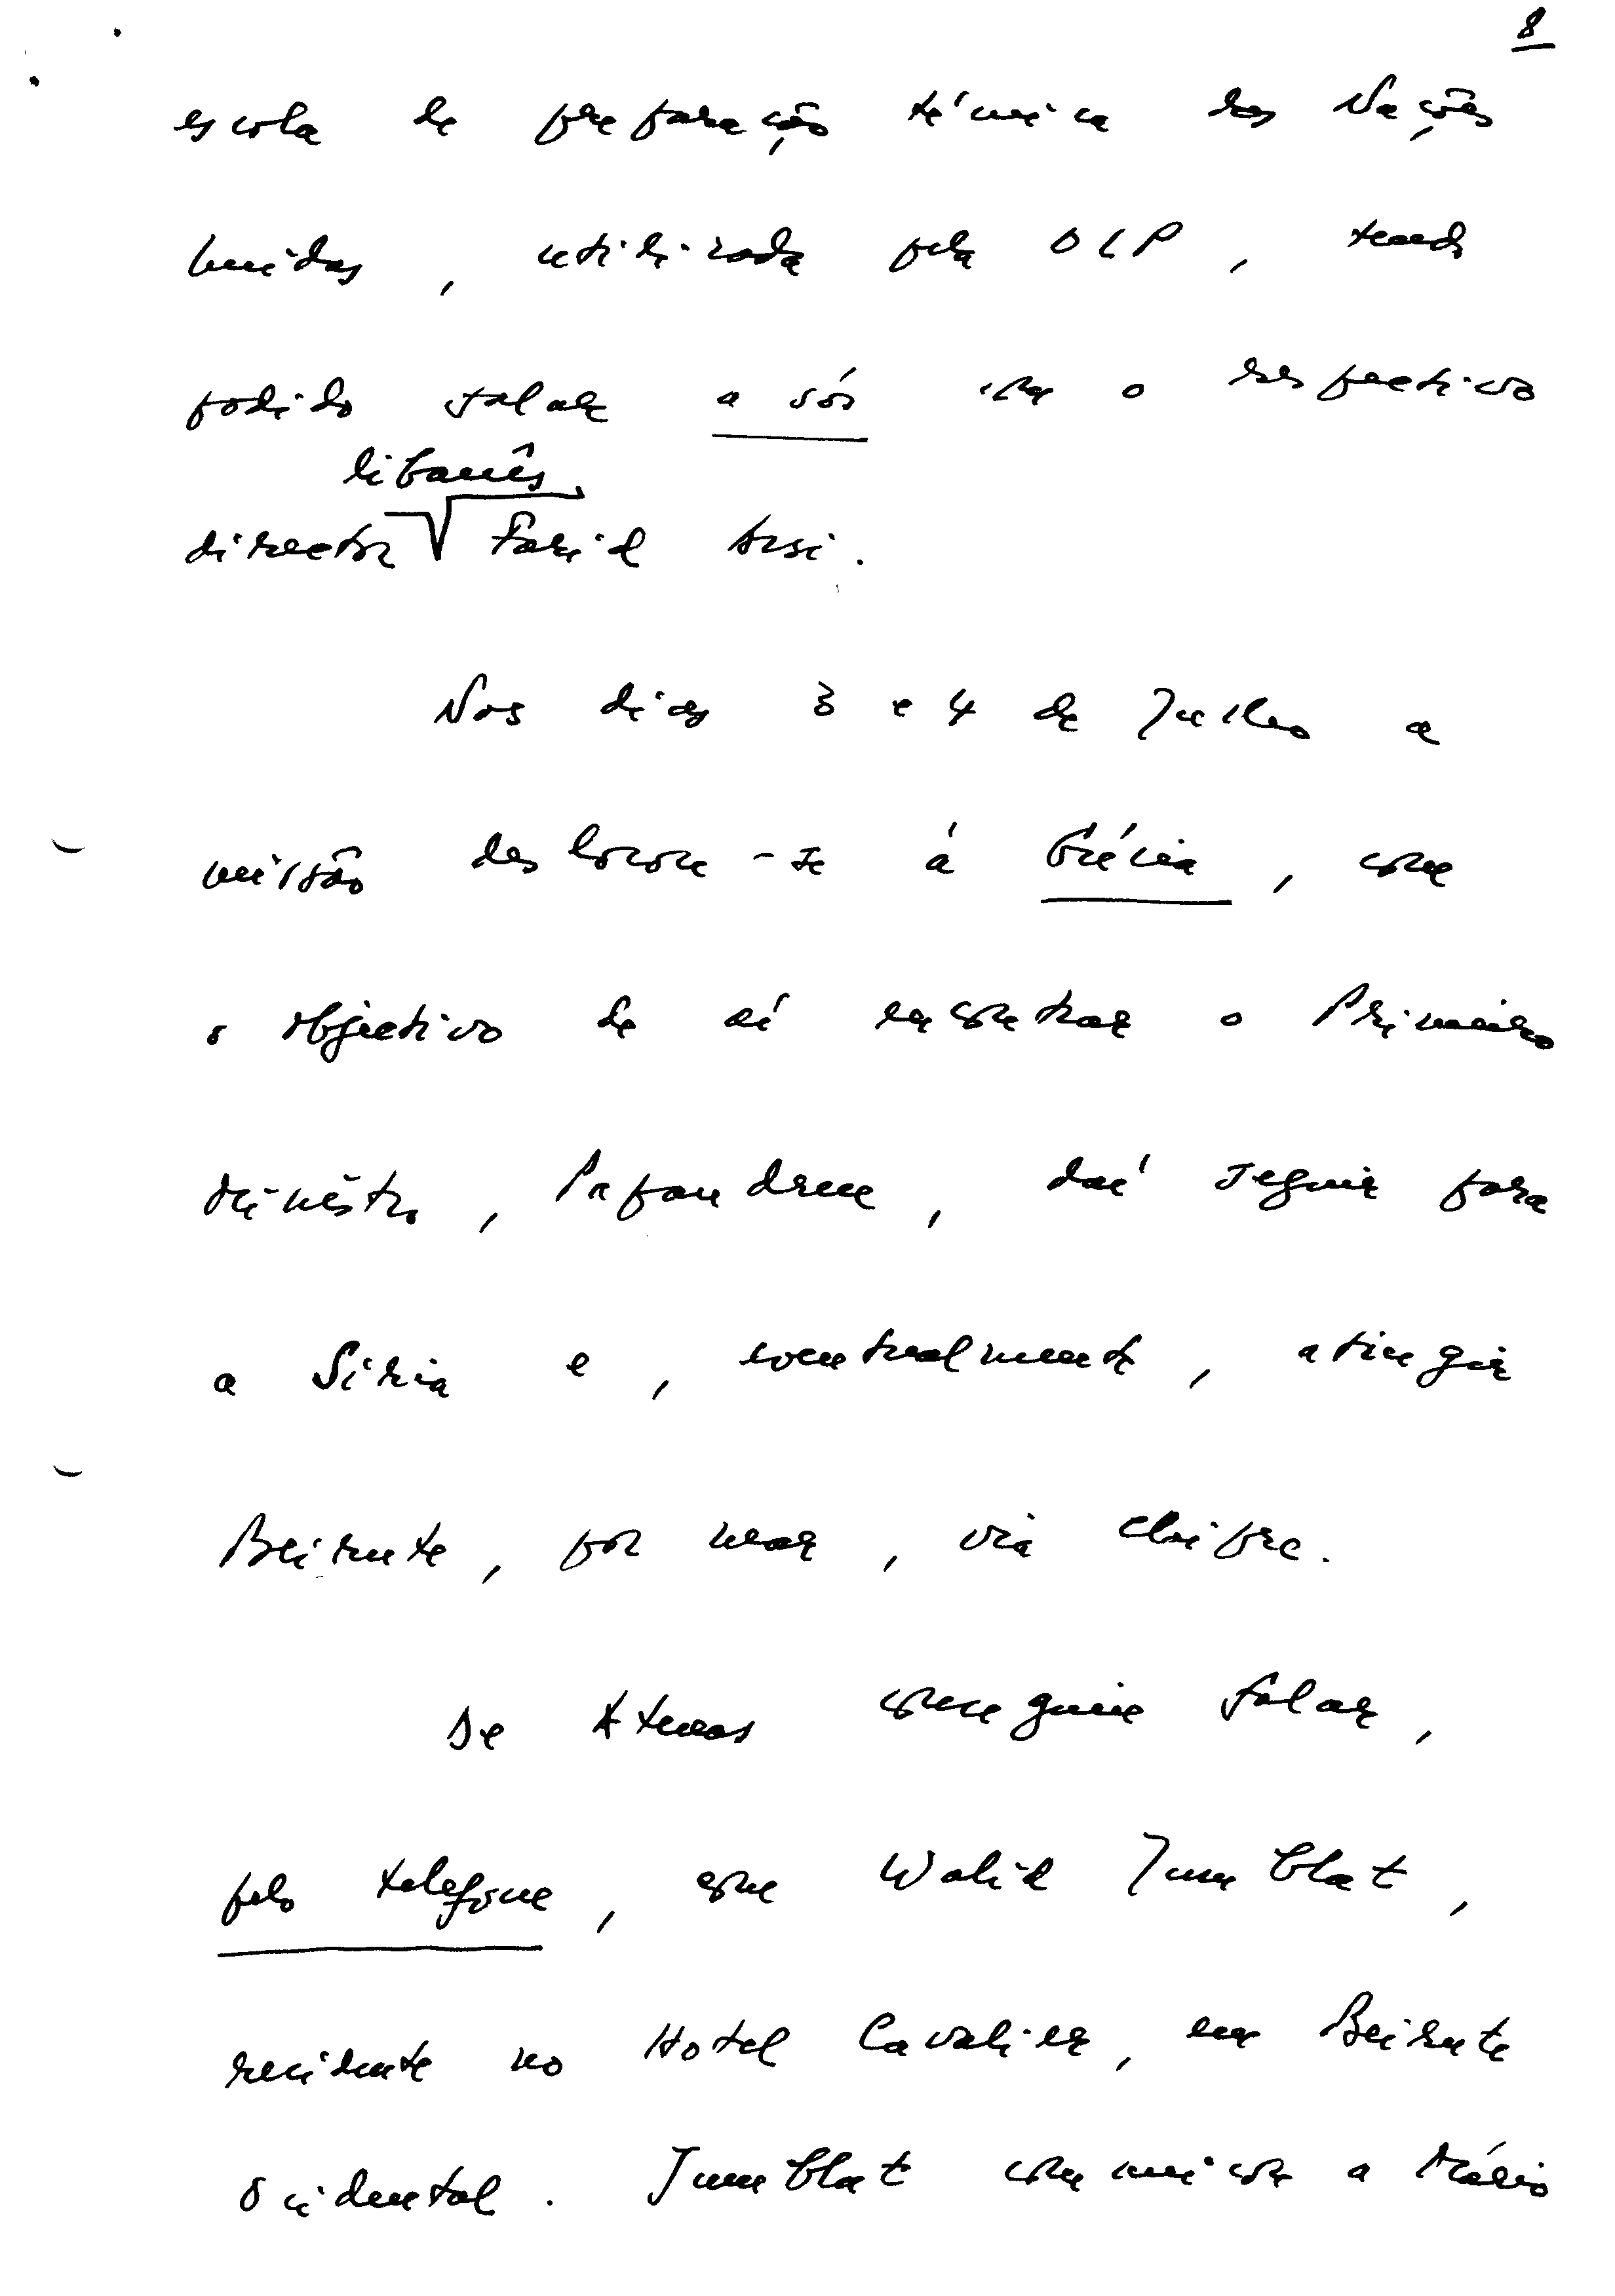 8
escola de preparação técnica das Nações
Unidas, utilizada pela OLP, tendo
podido falar a sós com o respectivo
libanês
director Farid
Nos dias 3 e 4 de Julho a
missão deslocou-se à Grécia, com
o objectivo de aí encontrar o Primeiro
Ministro, Papandreu, daí seguir para
a Síria e, eventualmente, atingir
Beirute, por mar, via Chipre.
De Atenas consegui falar,
pelo telefone, com Walid Jumblat,
residente no Hotel Cavalier, em Beirute
Ocidental. Jumblat comunicou a Mário